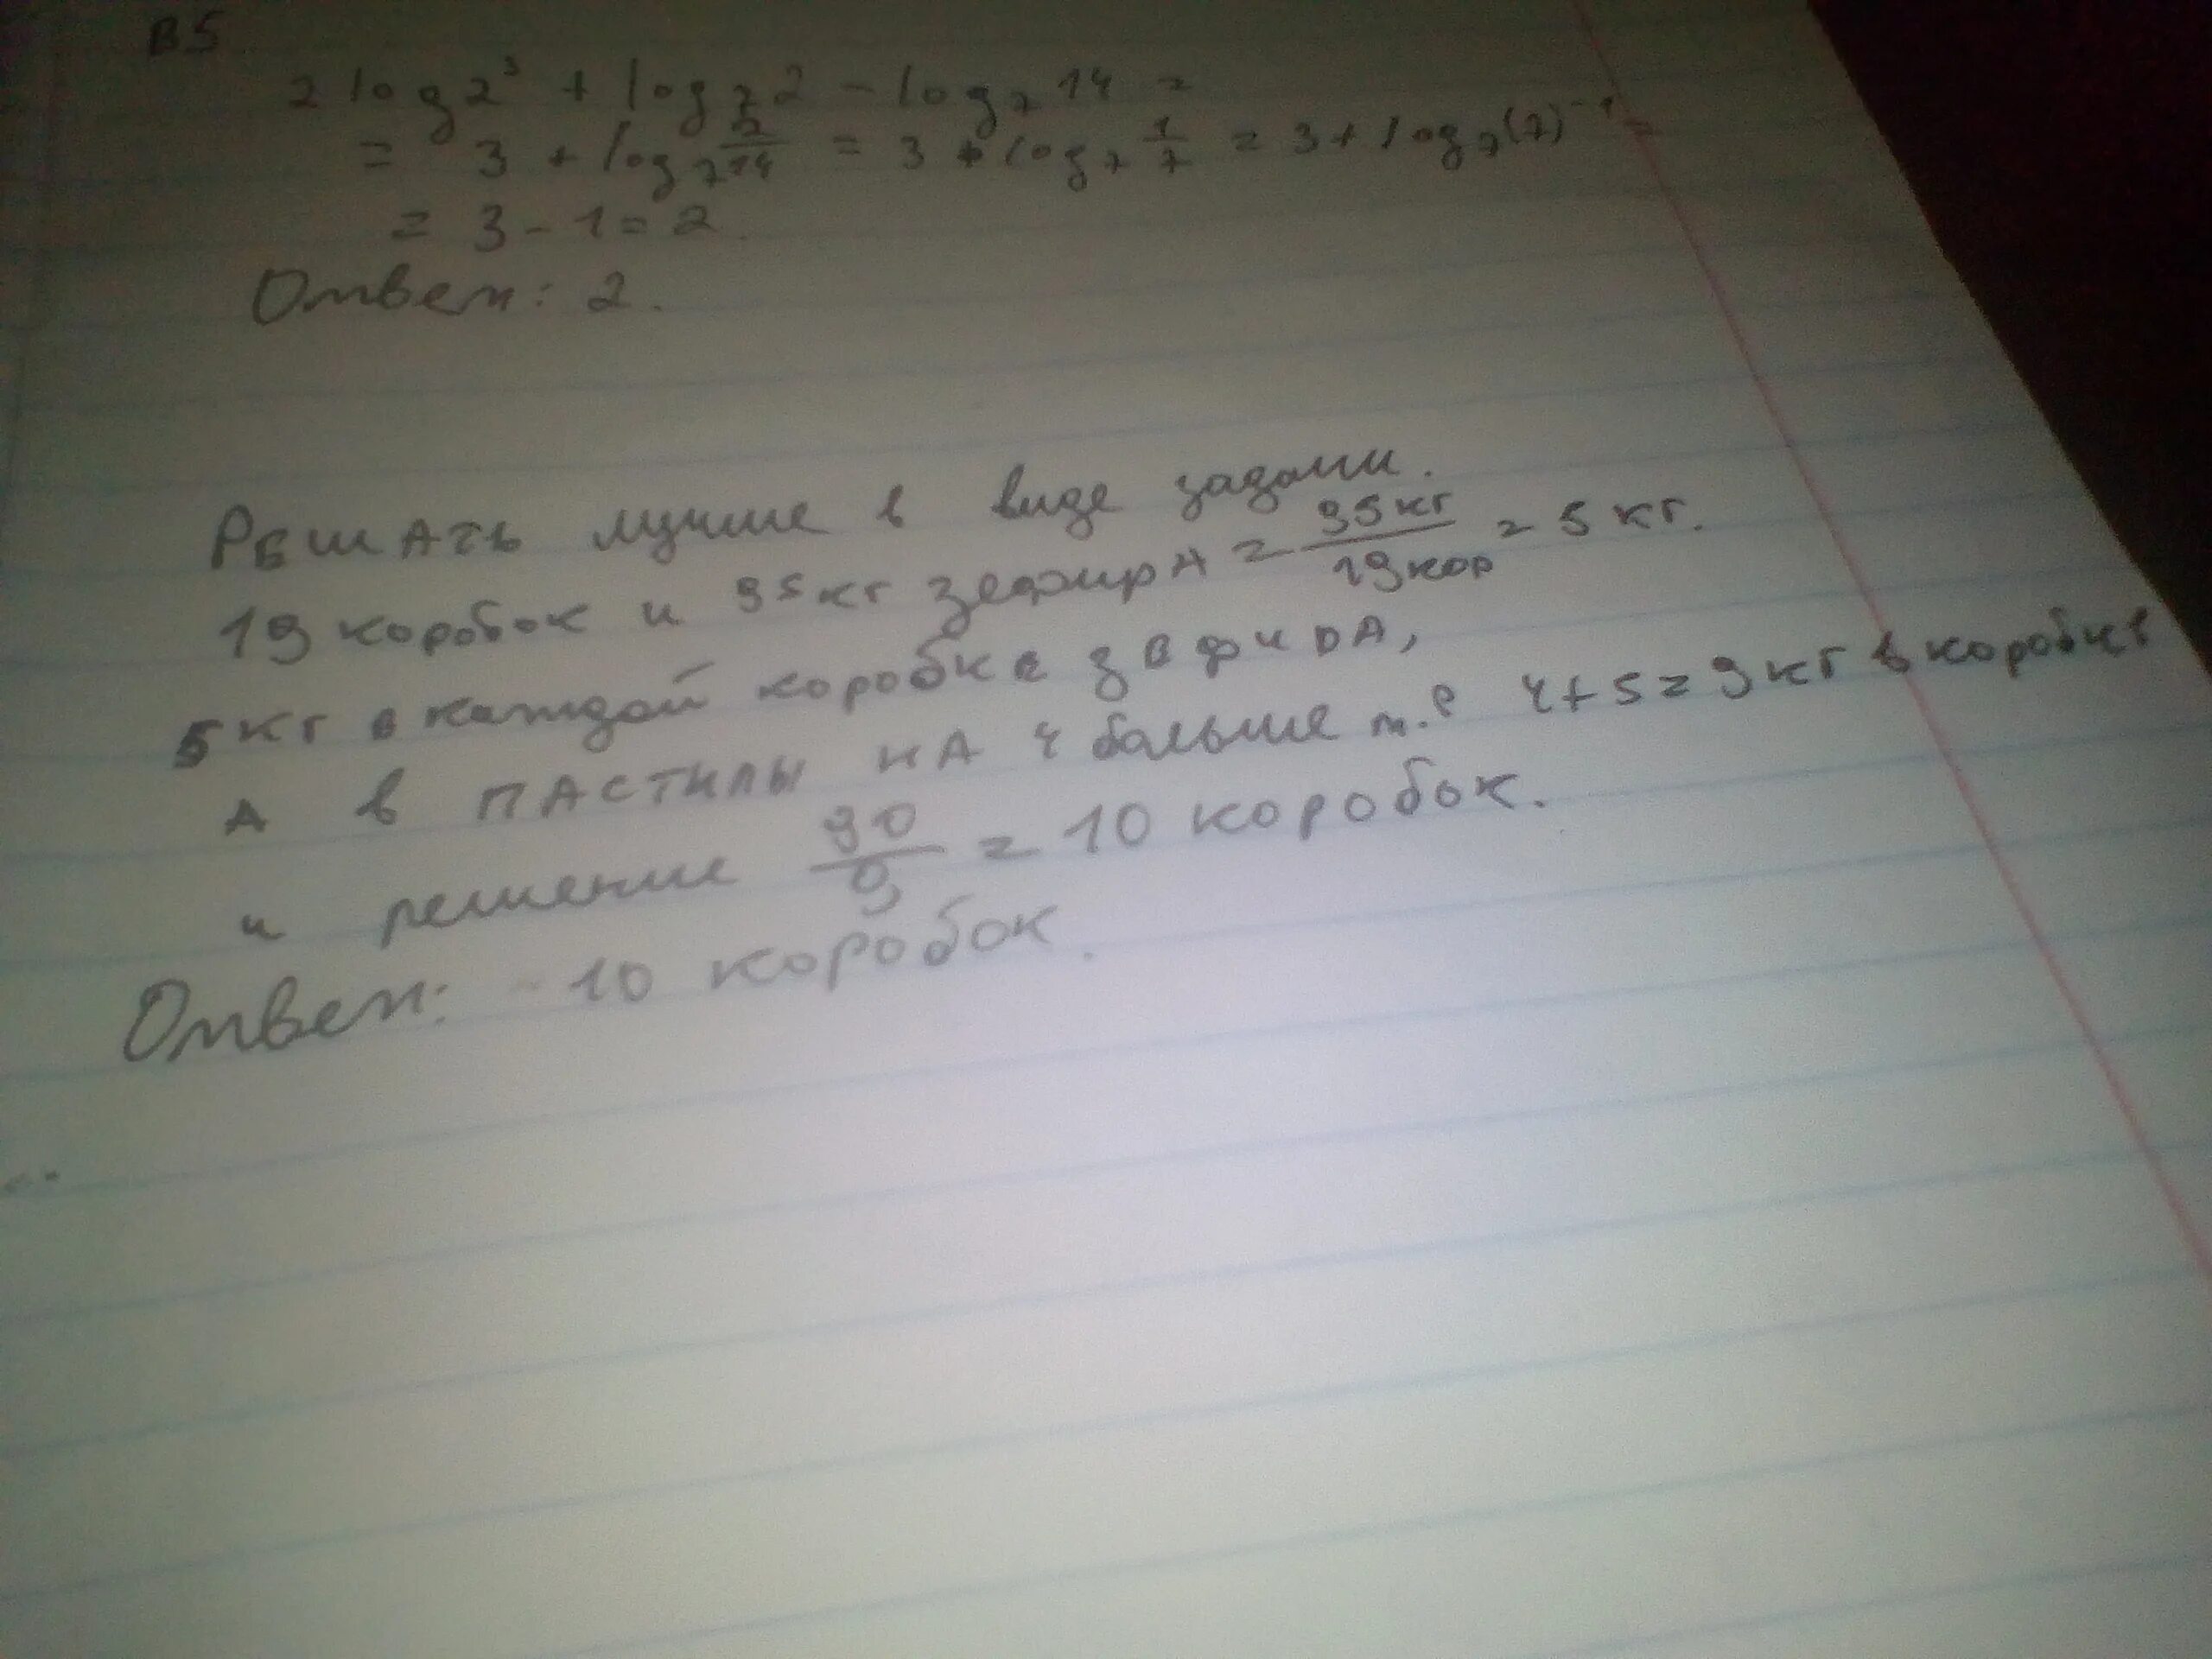 B5
2 log 2³ + log₇ 2 - log₇ 14 =
= 3 + log₇ 2/14 = 3 + log₇ 1/7 = 3 + log₇(7)⁻¹ =
= 3 - 1 = 2.
Ответ: 2.
Решать лучше в виде задачи.
19 коробок и 95кг зефирА = 95кг/19кор = 5 кг.
5кг в каждой коробке зефира,
А в ПАСТИЛЫ НА 4 больше т.е 4+5=9кг в коробке
и решение 90/9 = 10 коробок.
Ответ: 10 коробок.